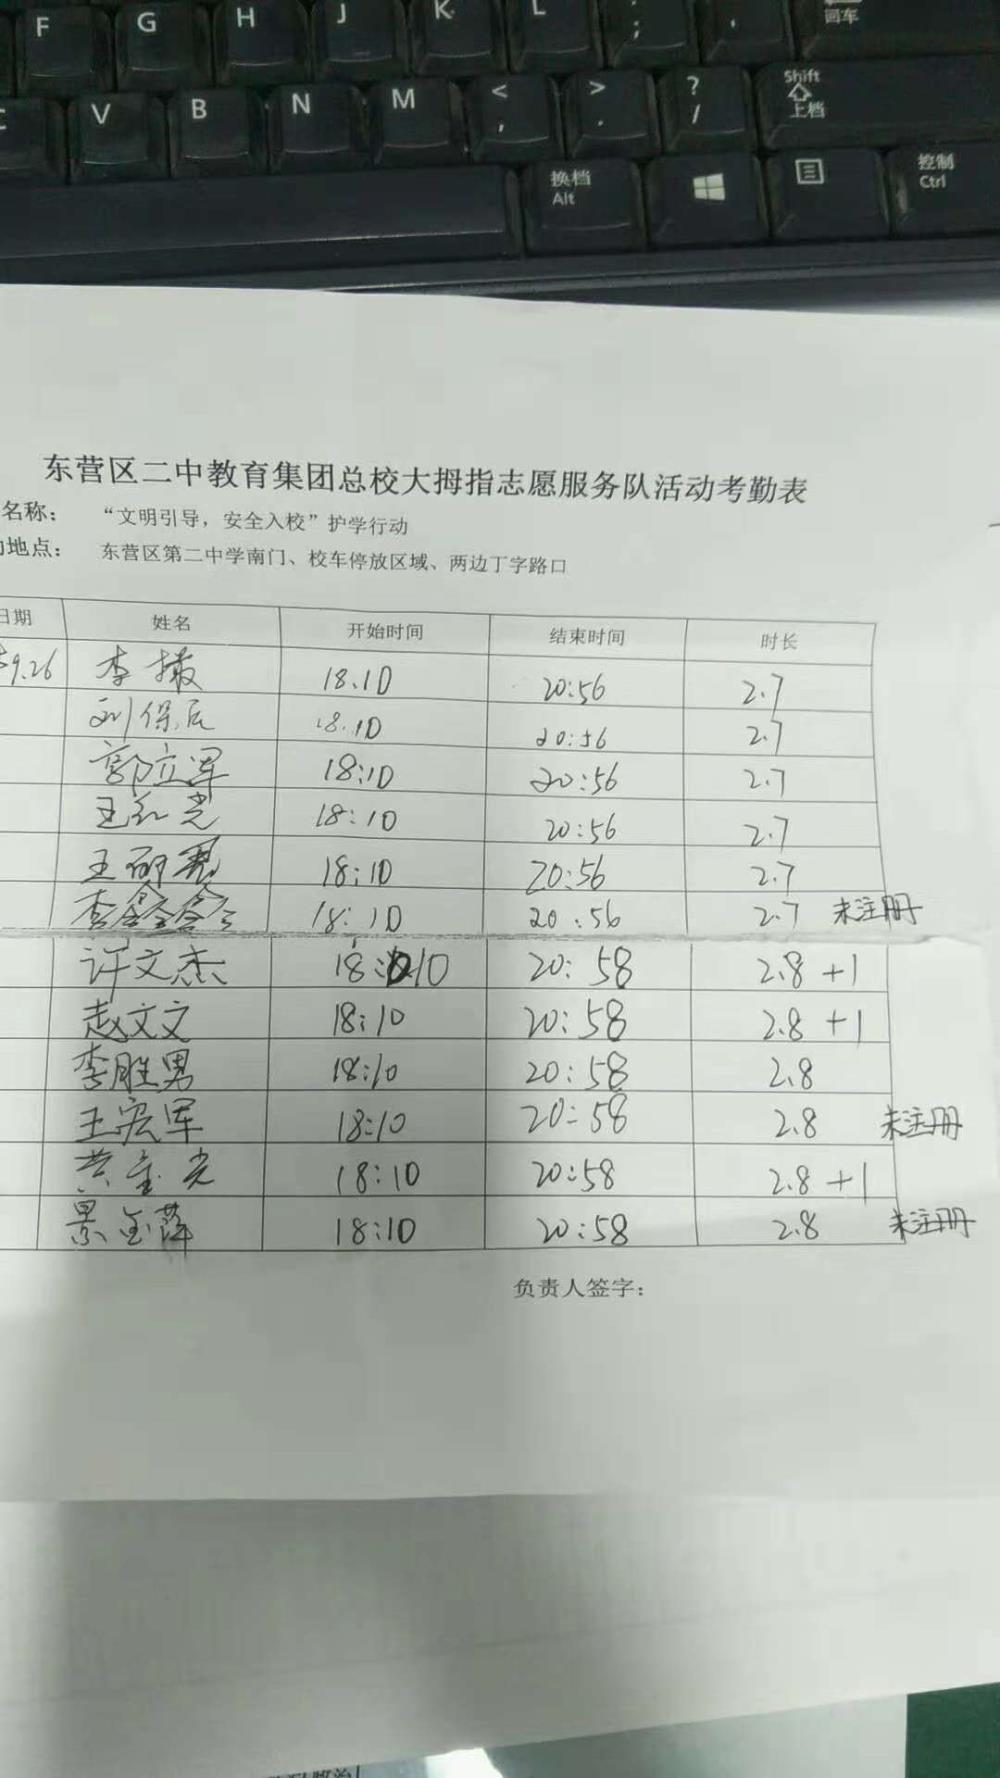 F G H J K L ; ,
回车
C V B N M < , > . ? / Shift 上档
换档 Alt 控制 Ctrl
东营区二中教育集团总校大拇指志愿服务队活动考勤表
名称： “文明引导，安全入校”护学行动
地点： 东营区第二中学南门、校车停放区域、两边丁字路口
日期 姓名 开始时间 结束时间 时长
9.26 李 18.10 20:56 2.7
刘保 18.10 20:56 2.7
郭立军 18:10 20:56 2.7
王红光 18:10 20:56 2.7
王 18:10 20:56 2.7
李 18:10 20:56 2.7 未注册
许文杰 18:10 20:58 2.8 +1
赵文文 18:10 20:58 2.8 +1
李胜男 18:10 20:58 2.8
王宏军 18:10 20:58 2.8 未注册
黄金光 18:10 20:58 2.8 +1
景金萍 18:10 20:58 2.8 未注册
负责人签字：